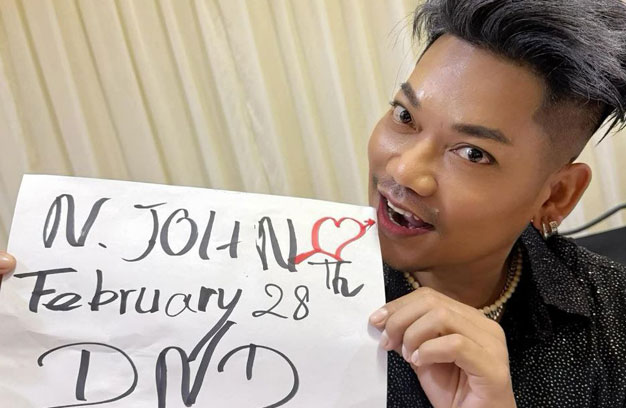 N. JOHN
February 28th
DND